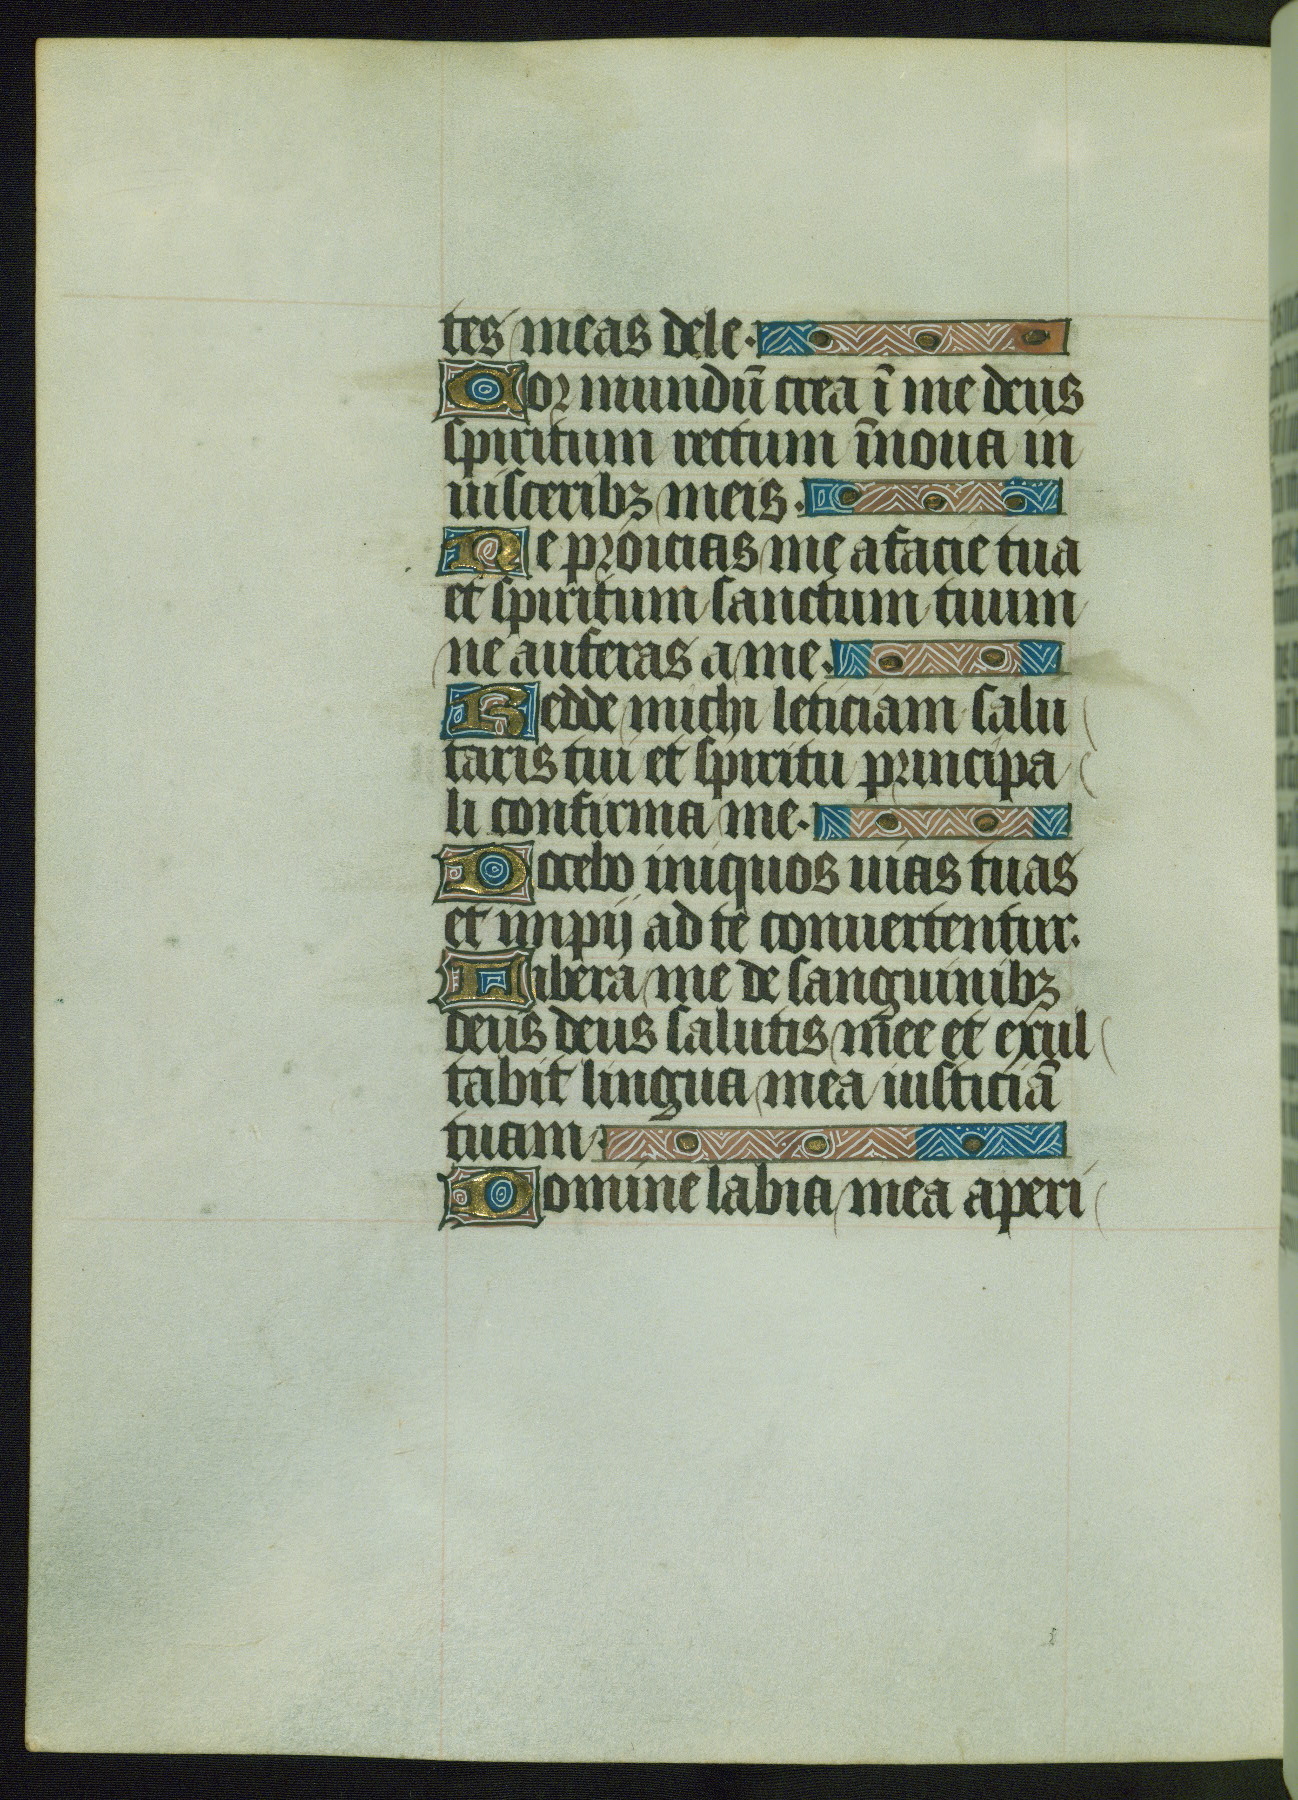 tes meas dele.
Cor mundū crea ī me deus
spiritum rectum īnoua in
uisceribꝫ meis.
Ne proicias me a facie tua
et spiritum sanctum tuum
ne auferas a me.
Redde michi leticiam salu
taris tui et spiritu principa
li confirma me.
Docebo iniquos uias tuas
et impij ad te conuertentur.
Libera me de sanguinibꝫ
deus deus salutis mee et exul
tabit lingua mea iusticiā
tuam.
Domine labia mea aperi